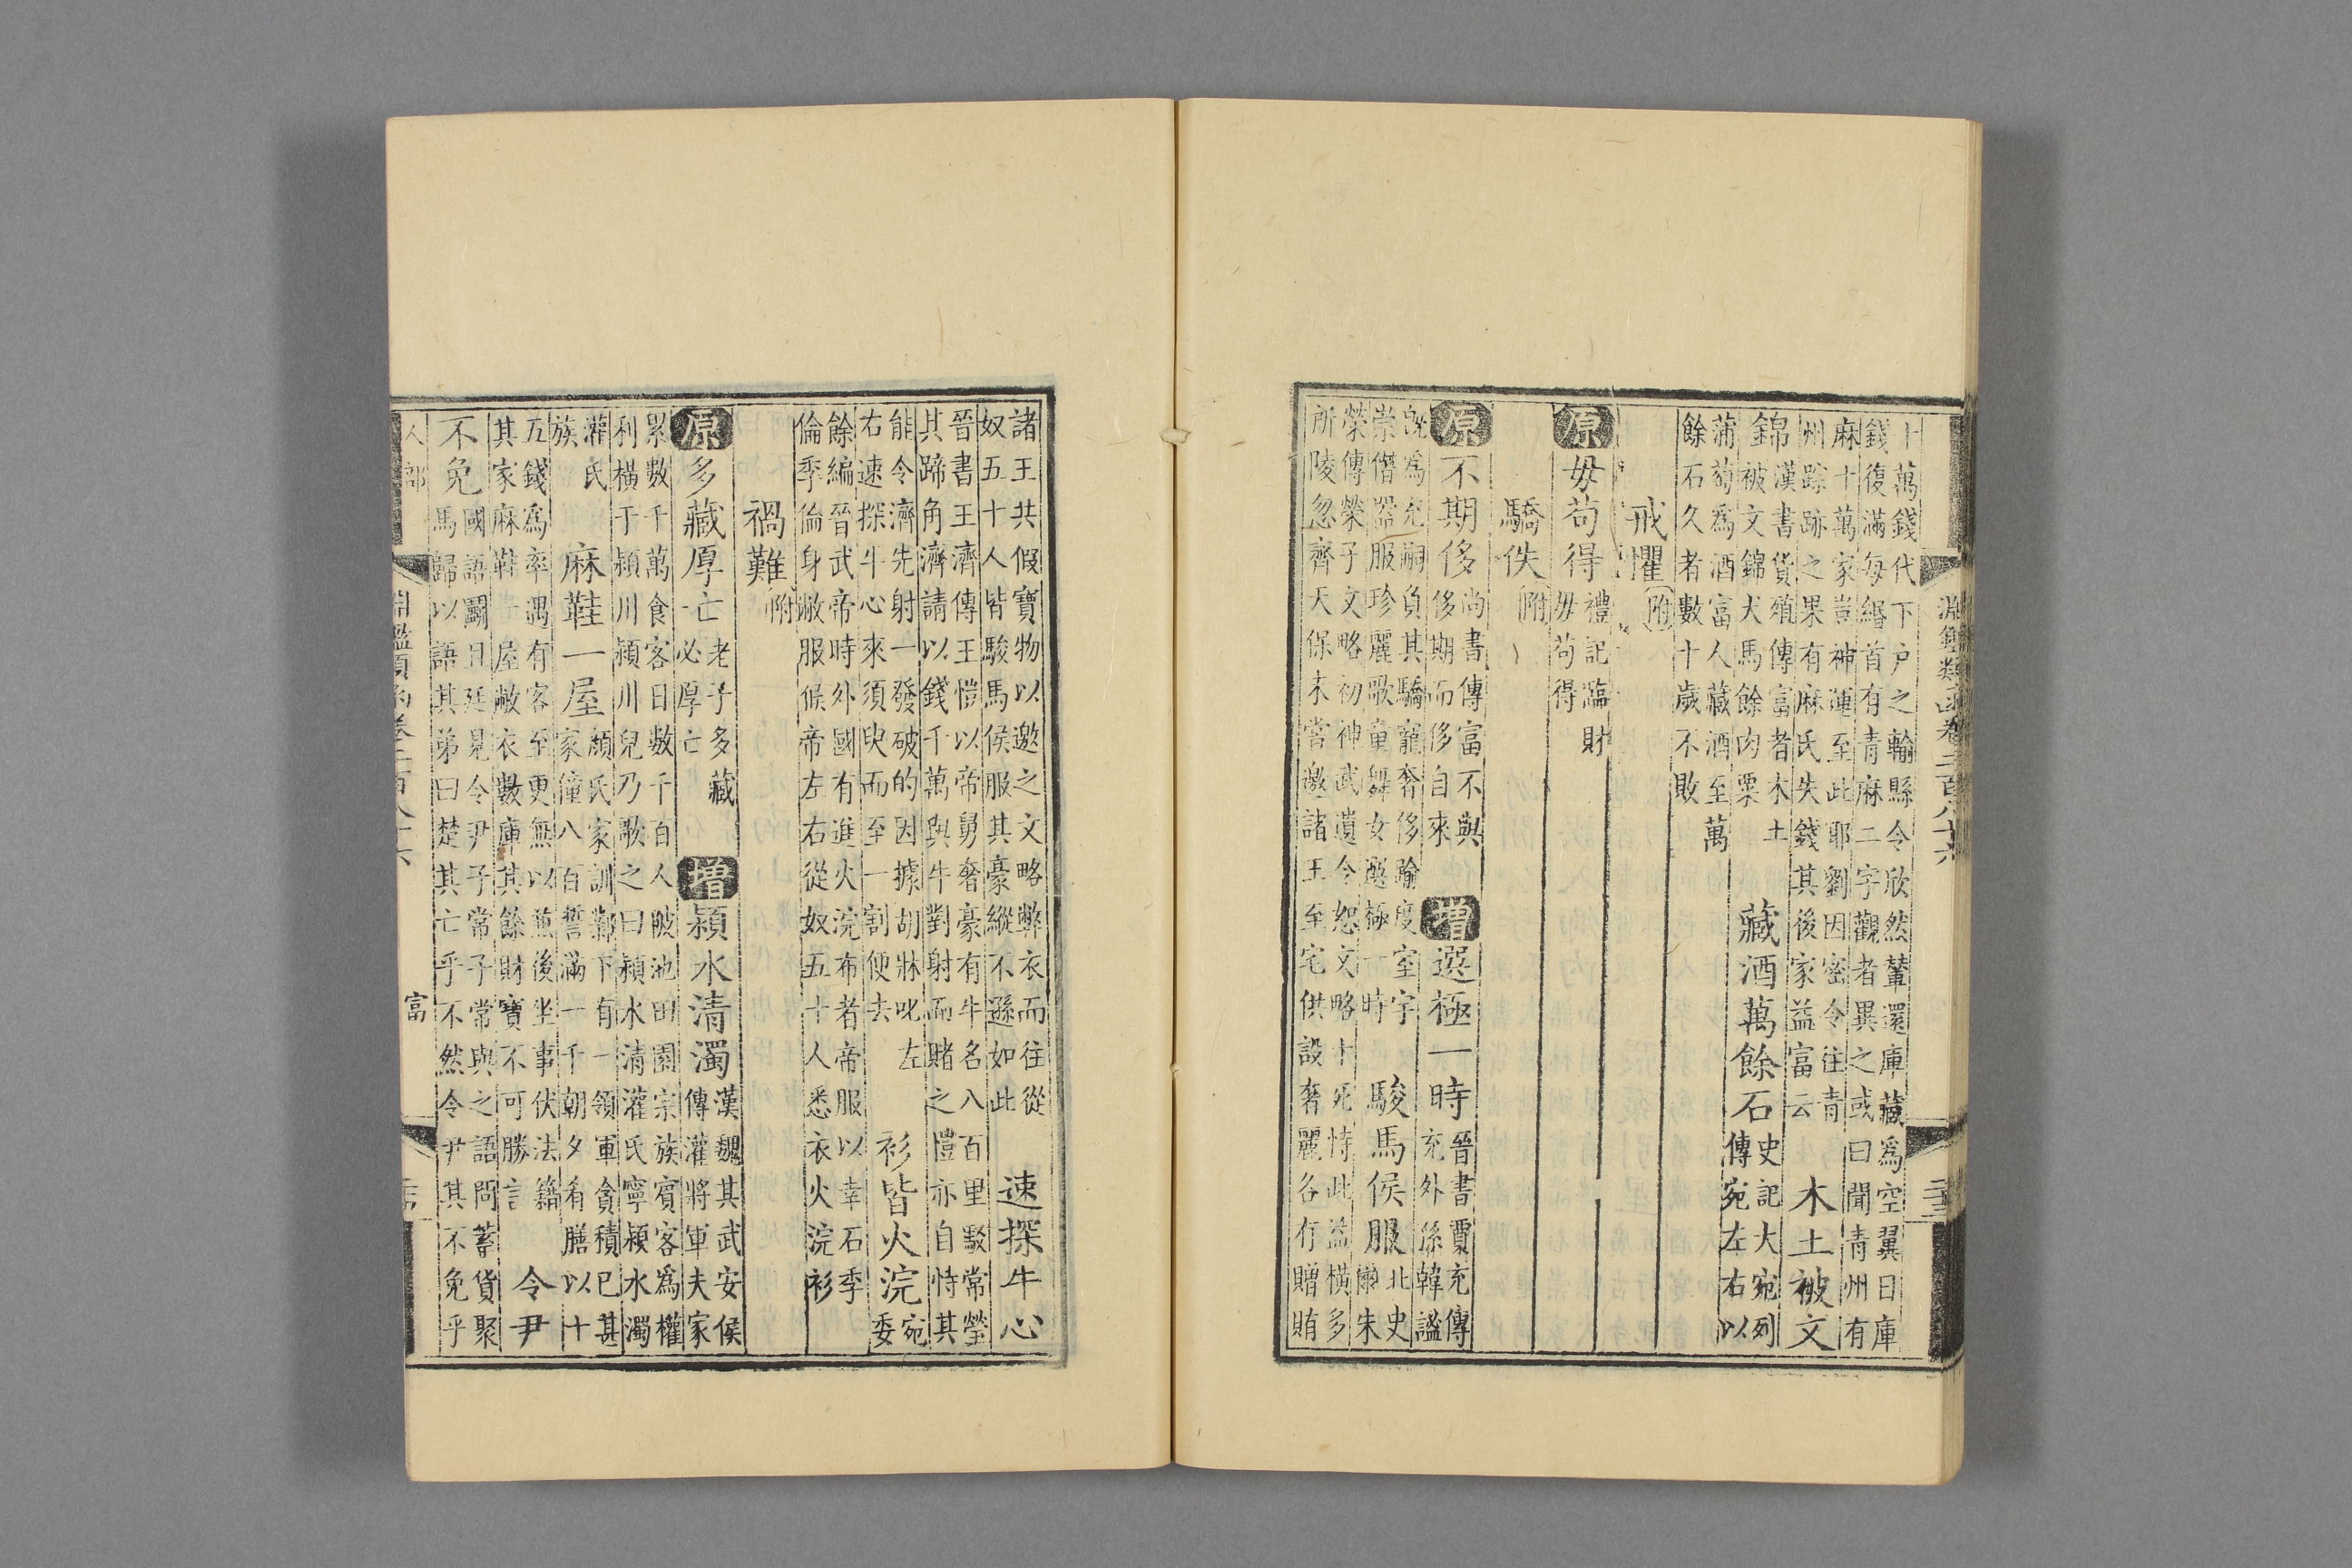 淵鑑類函卷二百八十六
十萬錢代下户之輸縣令欣然輦還庫藏爲空翼日庫
錢復滿每緡首有青麻二字觀者異之或曰聞青州有
麻十萬家豈神運至此耶劉因密令往青
州踪跡之果有麻氏失錢其後家益富云
木土被文
錦
漢書貨殖傳富者木土
被文錦犬馬餘肉粟
藏酒萬餘石
史記大宛列
傳宛左右以
蒲萄爲酒富人藏酒至萬
餘石久者數十歲不敗
戒懼附
原毋苟得
禮記臨財
毋苟得
驕佚附
原不期侈
尚書傳富不與
侈期而侈自來
增選極一時
晉書賈充傳
充外孫韓謐
旣爲充嗣負其驕寵奢侈踰度室宇
崇僭器服珍麗歌童舞女選極一時
駿馬侯服
北史
爾朱
榮傳榮子文略初神武遺令恕文略十死恃此益橫多
所陵忽齊天保末嘗邀諸王至宅供設奢麗各有贈賄
諸王共假寶物以邀之文略弊衣而往從
奴五十人皆駿馬侯服其豪縱不遜如此
速探牛心
晉書王濟傳王愷以帝舅奢豪有牛名八百里駮常瑩
其蹄角濟請以錢千萬與牛對射而賭之愷亦自恃其
能令濟先射一發破的因據胡牀叱左
右速探牛心來須臾而至一割便去
衫皆火浣
宛
委
餘編晉武帝時外國有進火浣布者帝服以幸石季
倫季倫身敝服候帝左右從奴五十人悉衣火浣衫
禍難附
原多藏厚亡
老子多藏
必厚亡
增潁水清濁
漢魏其武安侯
傳灌將軍夫家
累數千萬食客日數千百人陂池田園宗族賓客爲權
利橫于潁川潁川兒乃歌之曰潁水清灌氏寧潁水濁
灌氏
族
麻鞋一屋
顏氏家訓鄴下有一領軍貪積已甚
家僮八百誓滿一千朝夕肴膳以十
五錢爲率遇有客至更無以兼後坐事伏法籍
其家麻鞋一屋敝衣數庫其餘財寶不可勝言
令尹
不免
國語鬭且廷見令尹子常子常與之語問蓄貨聚
馬歸以語其弟曰楚其亡乎不然令尹其不免乎
人部
淵鑑類函卷二百八十六
富